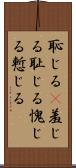 恥じる❌羞じ
る耻じる愧じ
る慙じる